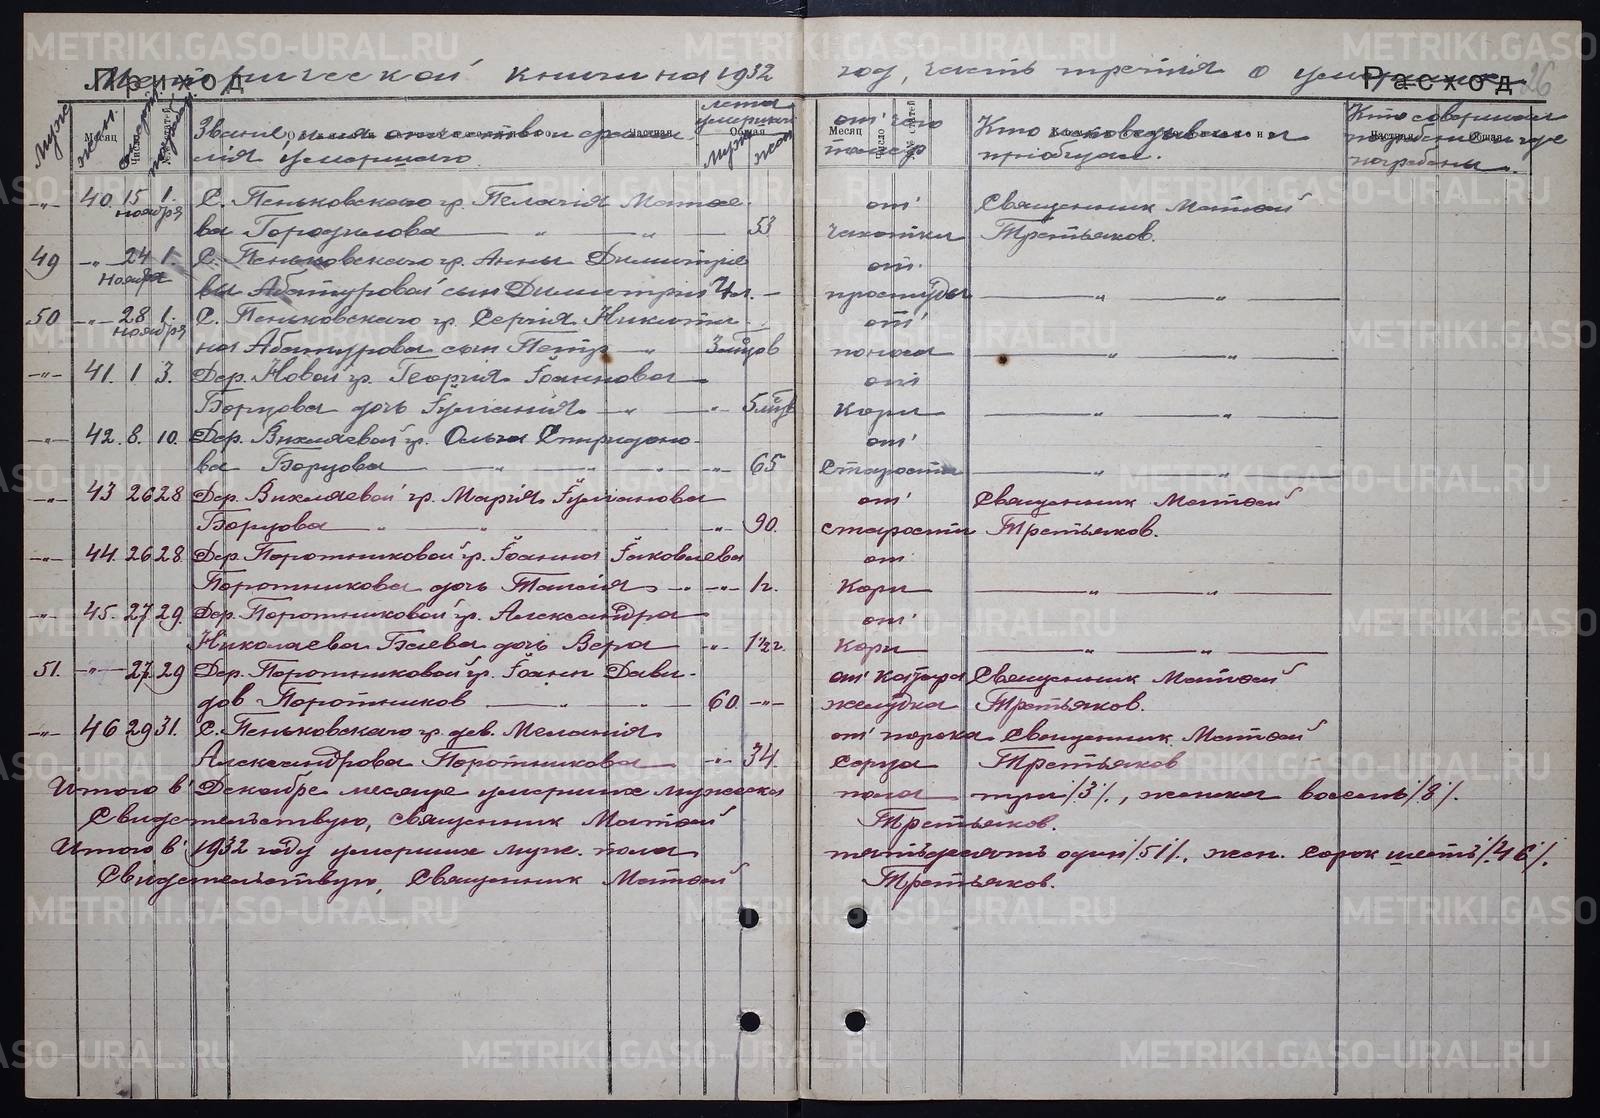 Приход Расход
Метрической книги на 1932 год, часть третия о умерших 26
Муже жен. Месяц Число
Звание, имя отчество и
лия умершаго.
лета умерших Муж жен
от чего помер
Кто исповедывал и приобщал.
Кто совершал погребение и где погребены.
-"- 40. 15 1. С. Пеньковскаго гр. Пелагия Матвее- от Священник Матвей
ноября
ва Городилова -"- -"- 53 чахотки Третьяков.
49 -"- 24 1. С. Пеньковскаго гр. Анны Димитрие от
Ноября
вы Абатуровой сын Димитрий 4 г. - простуды -"- -"-
50 -"- 28 1. С. Пеньковскаго гр. Сергия Никити- от
ноября
на Абатурова сын Петр -"- 3 м-цов поноса -"- -"-
-"- 41. 1 3. Дер. Новой гр. Георгия Иоаннова от
Борцова дочь Иулиания -"- -"- 5 м-цев Кори -"- -"-
-"- 42. 8. 10. Дер. Вихляевой гр. Ольга Спиридоно- от
ва Борцова -"- -"- -"- -"- 65 Старости -"- -"-
-"- 43 26 28 Дер. Вихляевой гр. Мария Иулианова от Священник Матвей
Борцова -"- -"- -"- 90. старости Третьяков.
-"- 44. 26 28. Дер. Поротниковой гр. Иоанна Иаковлева от
Поротникова дочь Таисия -"- -"- 1 г. Кори -"- -"-
-"- 45. 27 29. Дер. Поротниковой гр. Александра от
Николаева Баева дочь Вера -"- 1½ г. Кори -"- -"-
51. -"- 27. 29 Дер. Поротниковой гр. Иоанн Дави- от катара Священник Матвей
дов Поротников -"- -"- 60. -"- желудка Третьяков.
-"- 46 29 31. С. Пеньковскаго гр. дев. Мелания от порока Священник Матвей
Александрова Поротникова -"- 34. Серца Третьяков
Итого в Декабре месяце умерших мужеска пола три /3/., женска восемь /8/.
Свидетельствую, священник Матвей Третьяков.
Итого в 1932 году умерших муж. пола пятьдесят один /51/., жен. сорок шесть /46/.
Свидетельствую, Священник Матвей Третьяков.
METRIKI.GASO-URAL.RU